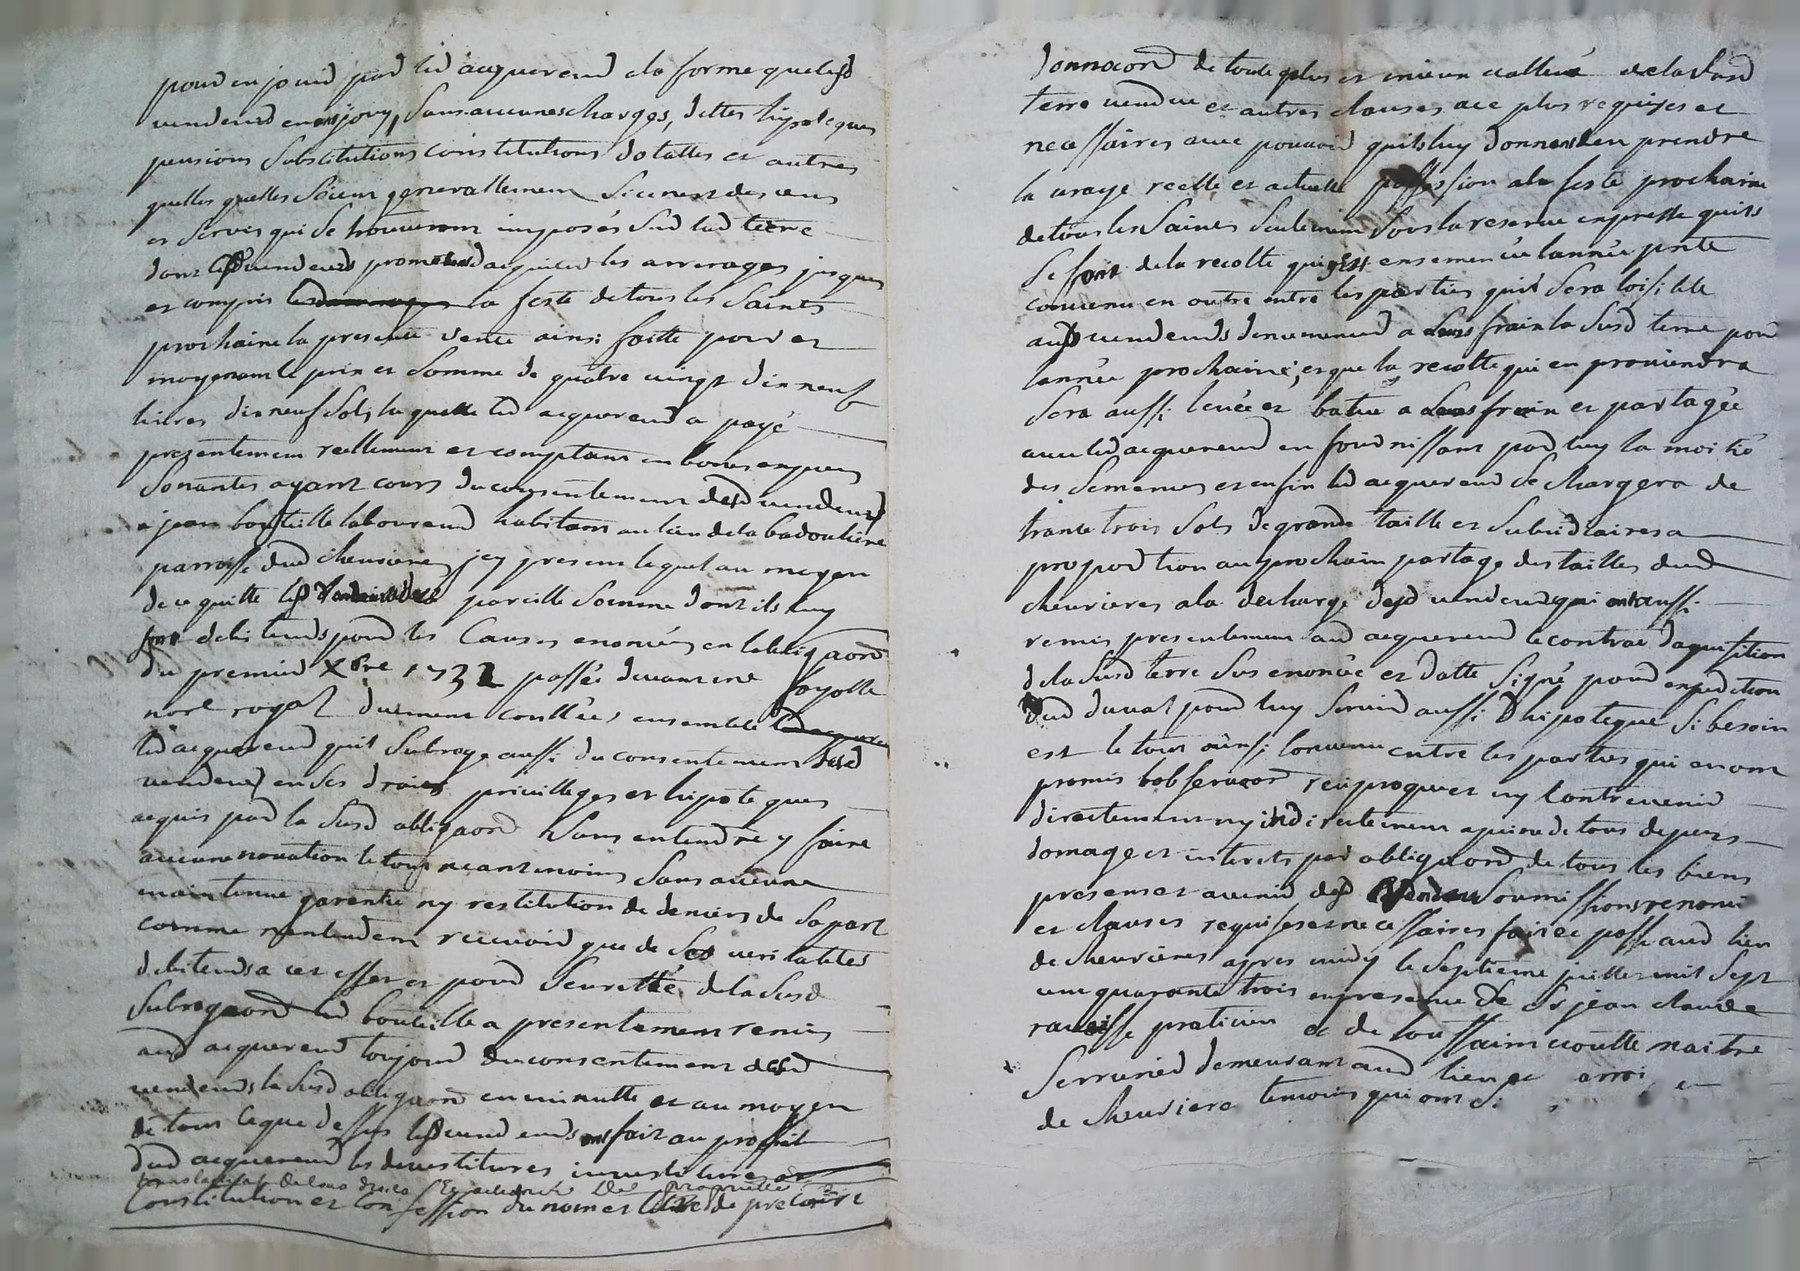 pour en jouir par led acquereur de la forme que lesd
vendeurs en ont jouy, sans aucunes charges, dettes hipoteques
pensions substitutions constitutions dotalles et autres
quelles quelles soient generallement si ce n'est des cens
et servis qui se trouveront imposés sur lad terre
dont lesd vendeurs promettent d'acquitter les arrerages jusques
et compris la feste de tous les Saints
prochaine la presente vente ainsi faitte pour et
moyenant le prix et somme de quatre vingt dix neuf
livres dix neuf sols, la quelle led acquereur a payé
presentement reellement et comptant en bonnes especes
sonantes ayant cours du consentement desd vendeurs
a jean bouteille laboureur habitant au lieu de la badouliere
parroisse dud chevrieres jcy present lequel au moyen
de ce quitte lesd vendeurs de pareille somme dont ils luy
sont debiteurs pour les causes enoncées en l'obligaõn
du premier Xbre 1732 passée devant me fayolle
nore royal duement conllée, ensemble
led acquereur quil subroge aussi du consentement desd
vendeurs en ses droits privilleges et hipoteques
acquis par la susd obligaõn sans entendre y faire
aucune novation le tout neantmoins sans aucune
maintenue garentie ny restitution de deniers de sa part
comme n'entendent recevoir que de ses veritables
debiteurs a cet effet et pour seuretté de la susd
subrogaõn led bouteille a presentement remis
aud acquereur toujours du consentement desd
vendeurs la susd obligaõn en minutte et au moyen
de tout ce que dessus lesd vendeurs ont fait au proffit
dud acquereur les devestitures investitures
translation de tous droits de proprieté
constitution et confession du nom et titre de precaire
donnaõn de toute plus et mieux vallue de la susd
terre vendue et autres clauses a ce plus requises et
necessaires avec pouvoir quils luy donnent d'en prendre
la vraye reelle et actuelle possession a la feste prochaine
de tous les Saints seulement sous la reserve expresse quils
se font de la recolte qui y est ensemencée l'année pnte
convenu en outre entre les parties quil sera loisible
ausd vendeurs d'ensemencer a leurs frais la susd terre pour
l'année prochaine, et que la recolte qui en proviendra
sera aussi levée et batue a leurs frais et partagée
avec led acquereur en fournissant par luy la moitié
des semences et enfin led acquereur se chargera de
trante trois sols de grande taille et subcidiaires a
proportion au prochain partage des tailles dud
chevrieres a la decharge desd vendeurs qui ont aussi
remis presentement aud acquereur le contrat d'aquisition
de la susd terre sus enoncée et datte signé pour expedition
dud duval pour luy servir aussi d'hipoteque si besoin
est le tout ainsi convenu entre les parties qui en ont
promis l'observaõn reciproque et ny contrevenir
directement ny indirectement a peine de tous depens
domages et interets par obligaõn de tous les biens
presens et avenir desd vendeurs soumissions renonc
et clauses requises et necessaires fait et passé aud lieu
de chevrieres apres midy le septieme juillet mil sept
cent quarante trois en presence de Sr jean claude
ravisse praticien et de toussaint vioulle maitre
serrurier demeurant aud lieu et
de chevriere temoins qui ont si